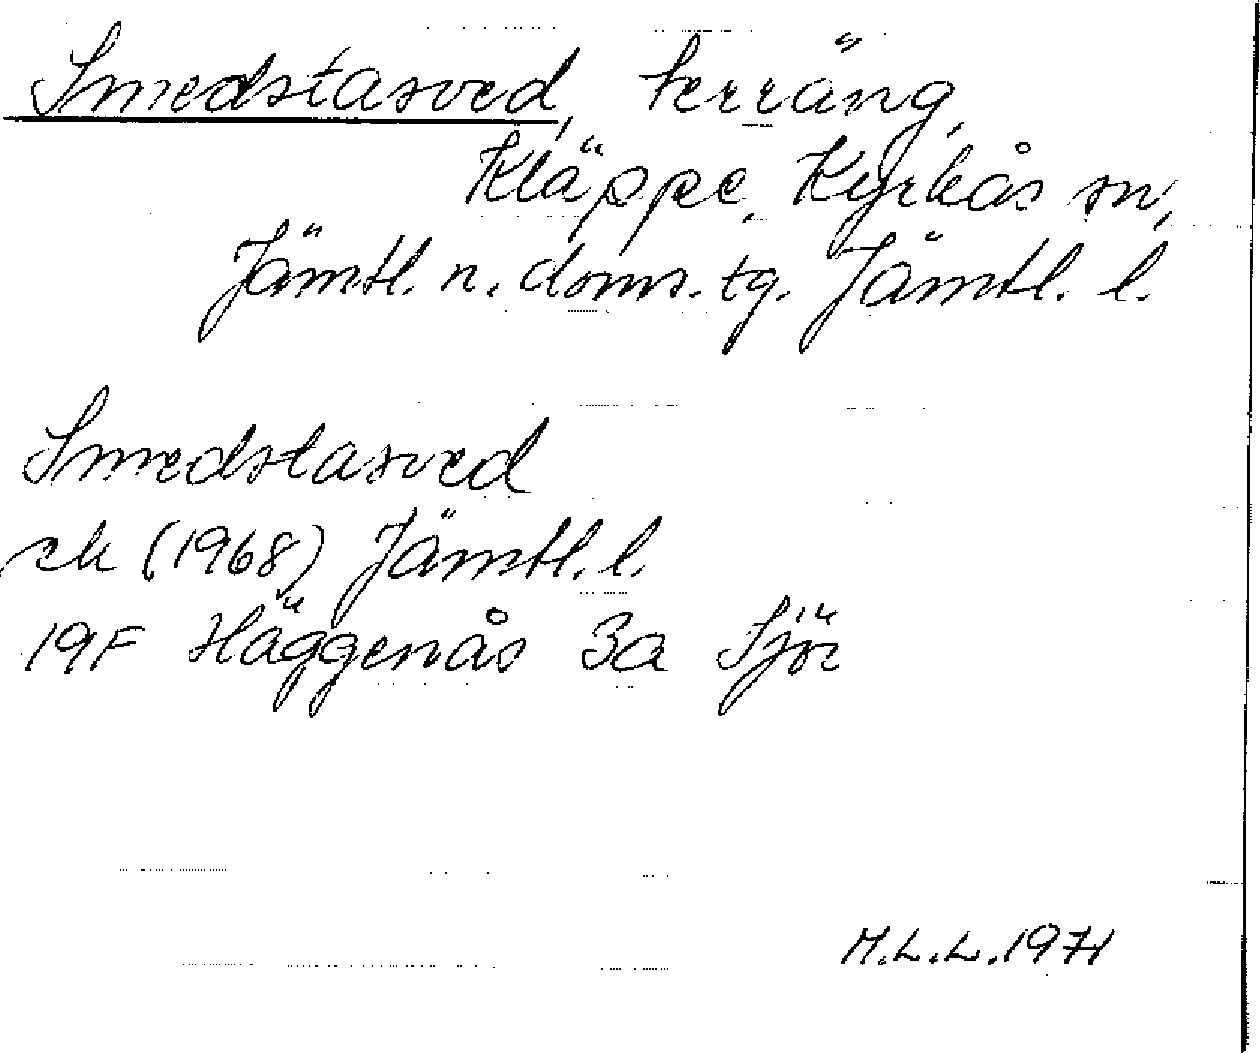 Smedstasved, terräng,
Kläppe, Kyrkås sn,
Jämtl. n. doms. tg. Jämtl. l.
Smedstasved
ek (1968) Jämtl. l.
19F Häggenås 3a Sjör
M.L.L. 1971